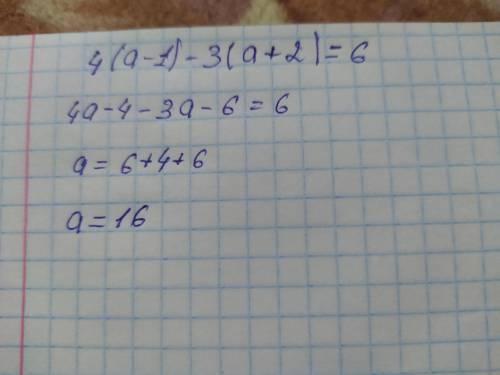 4(a-1)-3(a+2)=6
4a-4-3a-6=6
a=6+4+6
a=16